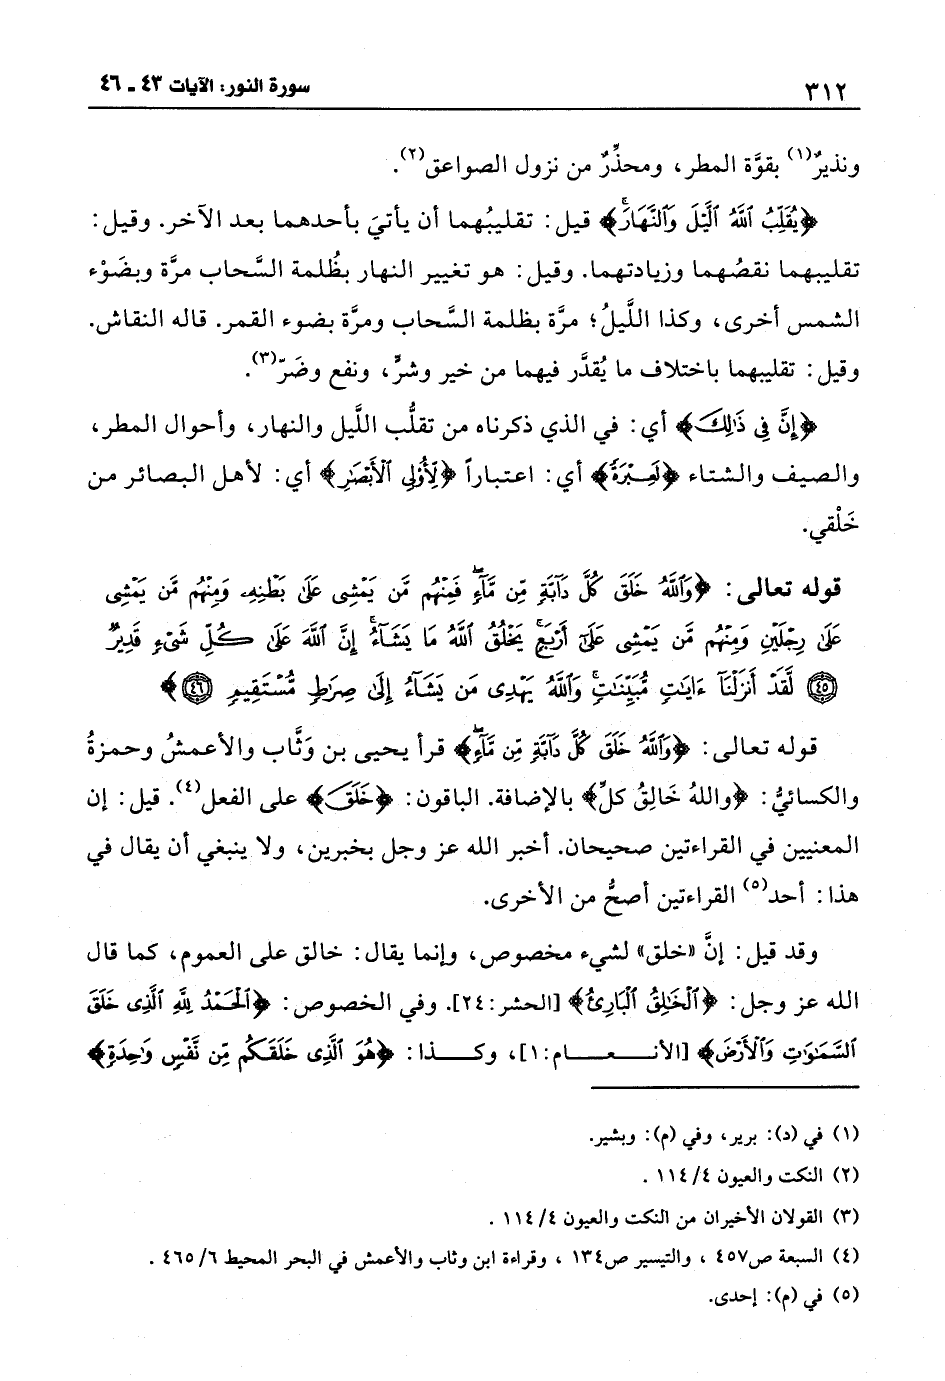 ٣١٢
سورة النور: الآيات ٤٣ ـ ٤٦
ونذيرٌ(١) بقوَّة المطر، ومحذِّرٌ من نزول الصواعق(٢).
﴿يُقَلِّبُ ٱللَّهُ ٱلَّيْلَ وَٱلنَّهَارَۚ﴾ قيل: تقليبُهما أن يأتيَ بأحدهما بعد الآخر. وقيل:
تقليبهما نقصُهما وزيادتهما. وقيل: هو تغيير النهار بظُلمة السَّحاب مرَّة وبضَوْء
الشمس أخرى، وكذا اللَّيلُ؛ مرَّة بظلمة السَّحاب ومرَّة بضوء القمر. قاله النقاش.
وقيل: تقليبهما باختلاف ما يُقدَّر فيهما من خير وشرٍّ، ونفع وضَرّ(٣).
﴿إِنَّ فِى ذَٰلِكَ﴾ أي: في الذي ذكرناه من تقلُّب اللَّيل والنهار، وأحوال المطر،
والصيف والشتاء ﴿لَعِبْرَةً﴾ أي: اعتباراً ﴿لِّأُوْلِى ٱلْأَبْصَٰرِ﴾ أي: لأهل البصائر من
خَلْقي.
قوله تعالى: ﴿وَٱللَّهُ خَلَقَ كُلَّ دَآبَّةٍ مِّن مَّآءٍۖ فَمِنْهُم مَّن يَمْشِى عَلَىٰ بَطْنِهِۦ وَمِنْهُم مَّن يَمْشِى
عَلَىٰ رِجْلَيْنِ وَمِنْهُم مَّن يَمْشِى عَلَىٰٓ أَرْبَعٍۚ يَخْلُقُ ٱللَّهُ مَا يَشَآءُۚ إِنَّ ٱللَّهَ عَلَىٰ كُلِّ شَىْءٍ قَدِيرٌ
٤٥ لَّقَدْ أَنزَلْنَآ ءَايَٰتٍ مُّبَيِّنَٰتٍۚ وَٱللَّهُ يَهْدِى مَن يَشَآءُ إِلَىٰ صِرَٰطٍ مُّسْتَقِيمٍ ٤٦﴾
قوله تعالى: ﴿وَٱللَّهُ خَلَقَ كُلَّ دَآبَّةٍ مِّن مَّآءٍۖ﴾ قرأ يحيى بن وَثَّاب والأعمشُ وحمزةُ
والكسائيُّ: ﴿واللهُ خَالِقُ كلِّ﴾ بالإضافة. الباقون: ﴿خَلَقَ﴾ على الفعل(٤). قيل: إن
المعنيين في القراءتين صحيحان. أخبر الله عز وجل بخبرين، ولا ينبغي أن يقال في
هذا: أحد(٥) القراءتين أصحُّ من الأخرى.
وقد قيل: إنَّ «خلق» لشيء مخصوص، وإنما يقال: خالق على العموم، كما قال
الله عز وجل: ﴿ٱلْخَٰلِقُ ٱلْبَارِئُ﴾ [الحشر:٢٤]. وفي الخصوص: ﴿ٱلْحَمْدُ لِلَّهِ ٱلَّذِى خَلَقَ
ٱلسَّمَٰوَٰتِ وَٱلْأَرْضَ﴾ [الأنـعـام:١]، وكـذا: ﴿هُوَ ٱلَّذِى خَلَقَكُم مِّن نَّفْسٍ وَٰحِدَةٍ﴾
(١) في (د): برير، وفي (م): وبشير.
(٢) النكت والعيون ٤/ ١١٤ .
(٣) القولان الأخيران من النكت والعيون ٤/ ١١٤ .
(٤) السبعة ص٤٥٧ ، والتيسير ص١٣٤ ، وقراءة ابن وثاب والأعمش في البحر المحيط ٦/ ٤٦٥ .
(٥) في (م): إحدى.